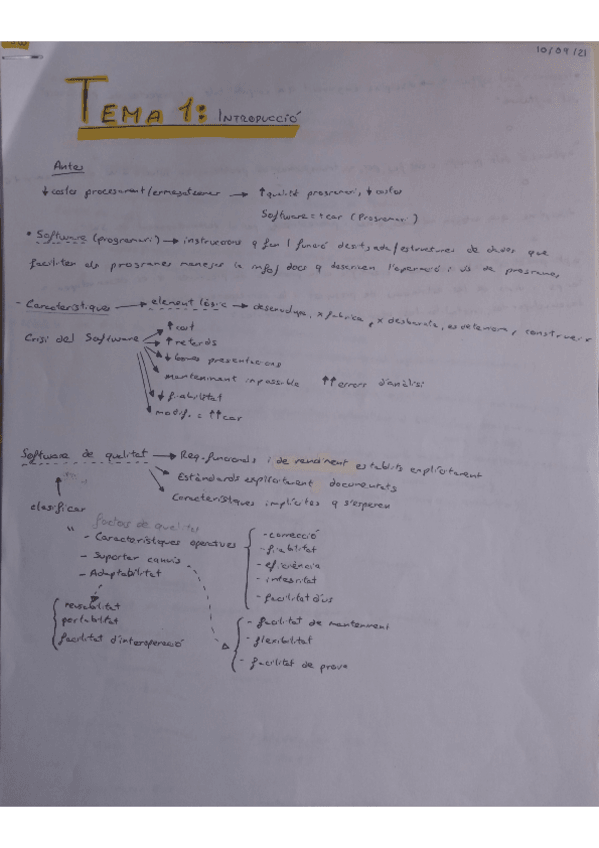 10/09/21
TEMA 1: INTRODUCCIÓ
Antes
↓ costos procesament/emmagatzemar → ↑ qualitat programari, ↓ costos
Software = + car (Programari)
* Software (programari) → instruccions q fan 1 funció desitjada/estructures de dades que
faciliten els programes manejar la info/ docs q descriuen l'operació i ús de programes
- Característiques → element lògic → desenvolupa, x fabrica, x desbarata, es deteriora, construeix
Crisi del Software → ↑ cost
→ ↑ retards
→ ↓ bones presentacions
→ manteniment impossible ↑↑ errors d'anàlisi
→ ↓ fiabilitat
→ modif. = ↑↑ car
Software de qualitat → Req. funcionals i de rendiment establits explícitament
→ Estàndards explícitament documentats
→ Característiques implícites q s'esperen
clasificar
" factors de qualitat
- Característiques operatives { - correcció
- fiabilitat
- Suportar canvis
- eficiència
- Adaptabilitat
- integritat
- facilitat d'ús
{ reusabilitat
portabilitat
facilitat d'interoperació
{ - facilitat de manteniment
- flexibilitat
- facilitat de prova